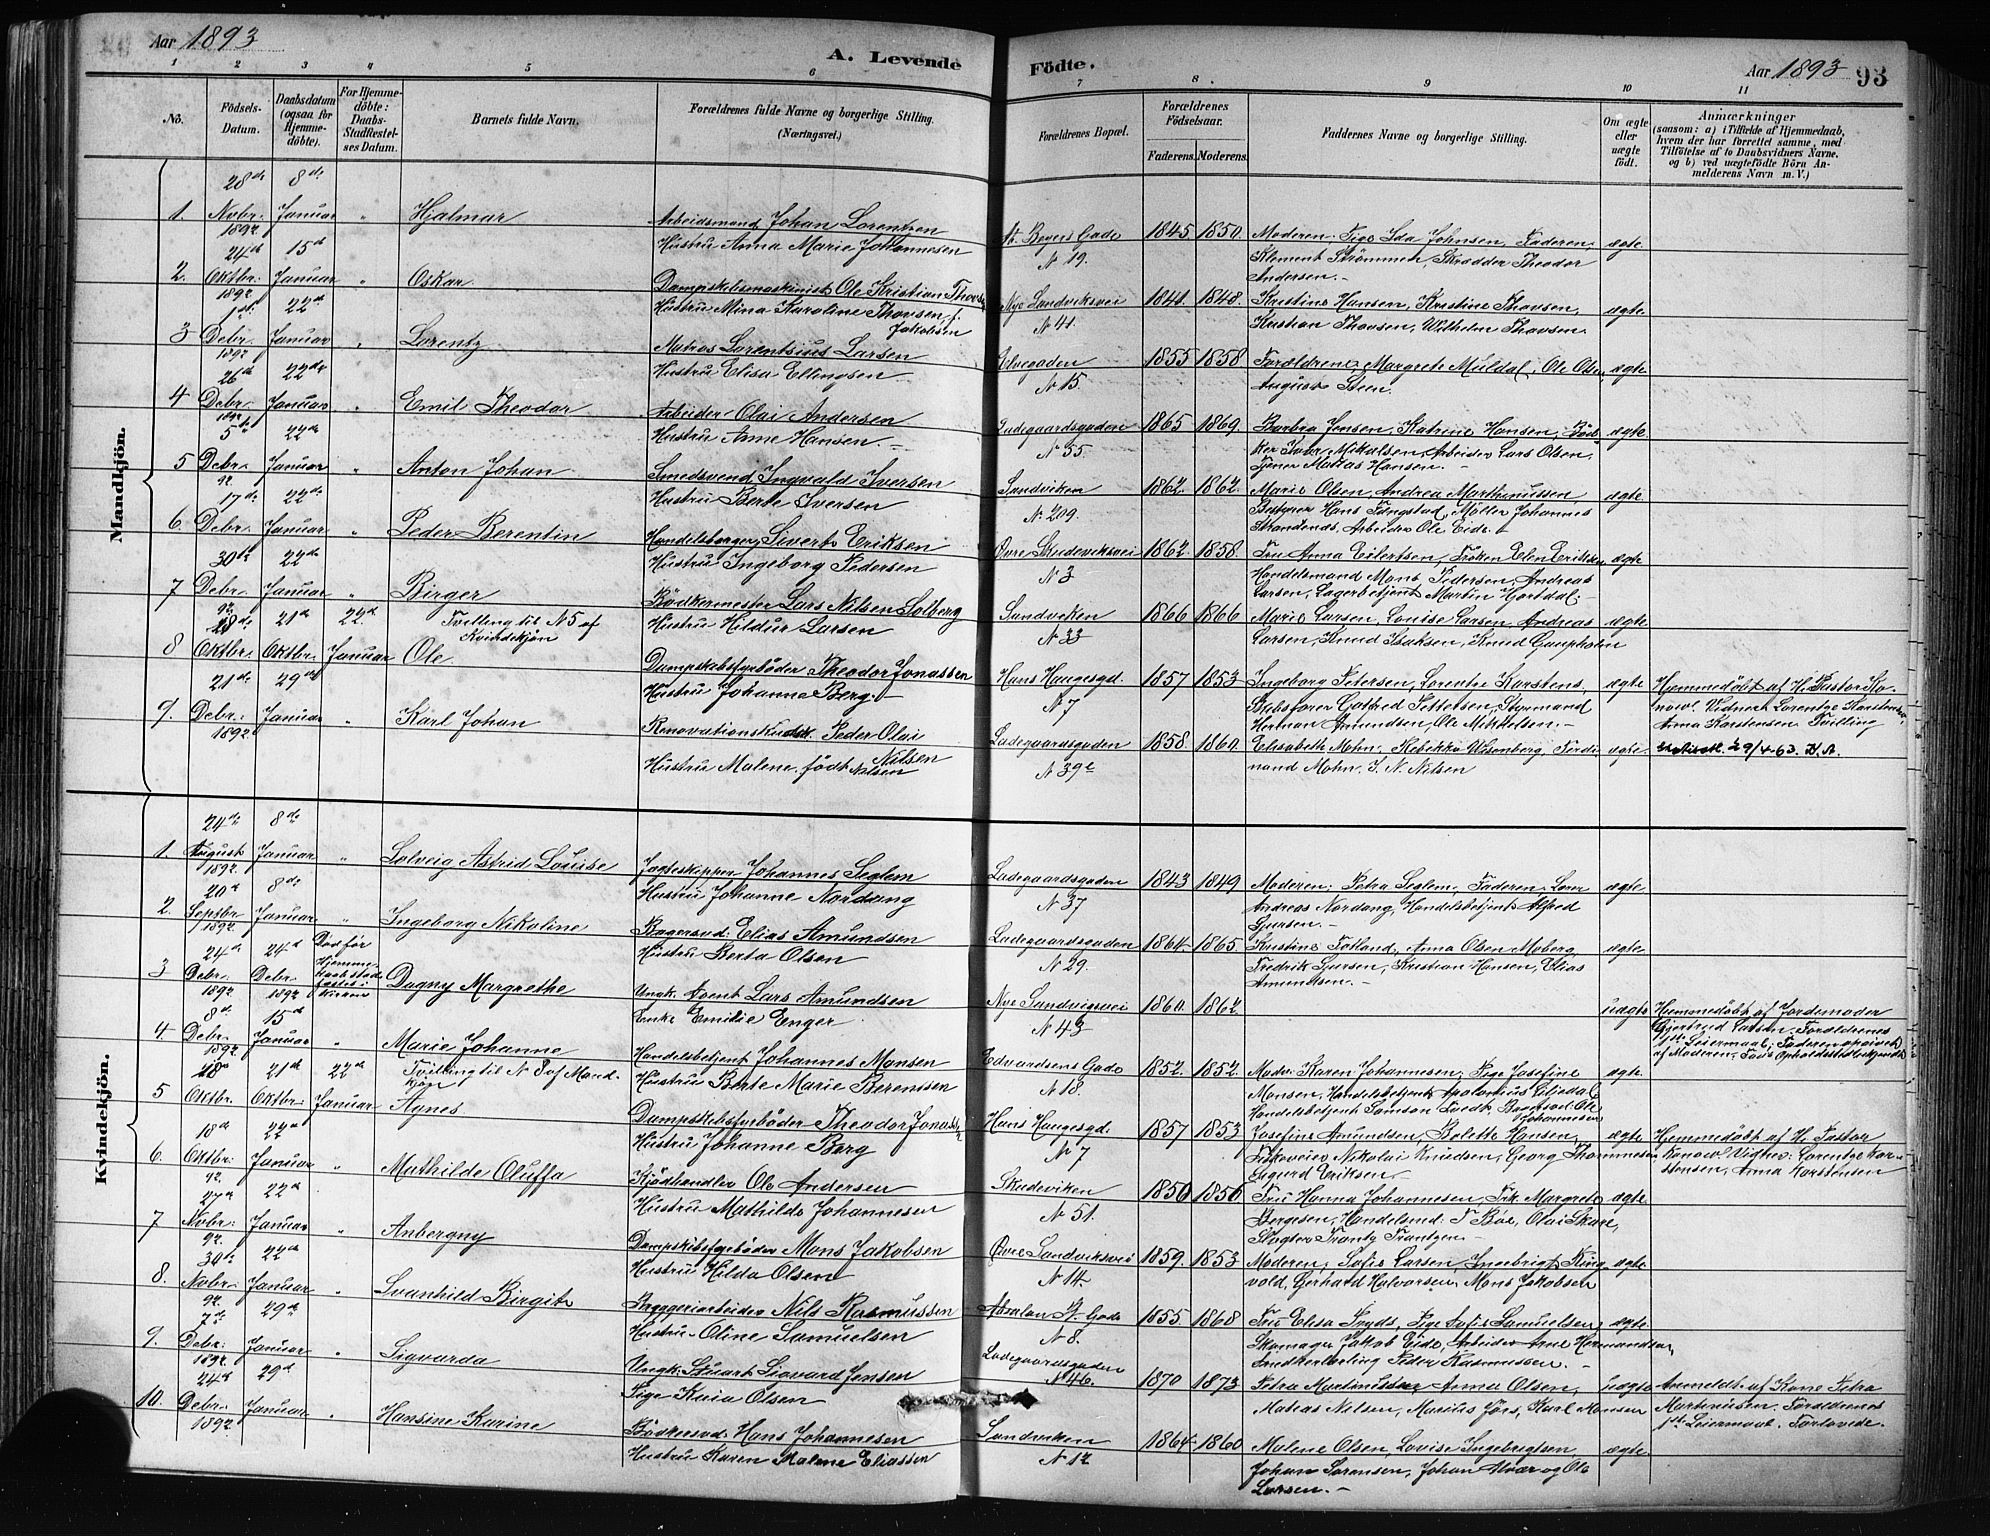 Aar 1893
A. Levende
Födte.
Aar 1893
93
1 2 3 4 5 6 7 8 9 10 11
No.
Födsels-Datum.
Daabsdatum (ogsaa for Hjemmedöbte).
For Hjemmedöbte: Daabs-Stadfestelses Datum.
Barnets fulde Navn.
Forældrenes fulde Navne og borgerlige Stilling. (Næringsvei.)
Forældrenes Bopæl.
Forældrenes Födselsaar.
Faderens. Moderens.
Faddernes Navne og borgerlige Stilling.
Om ægte eller uægte födt.
Anmærkninger
(saasom: a) i Tilfælde af Hjemmedaab, hvem der har forrettet samme, med Tilföielse af to Daabsvidners Navne, og b) ved uægtefödte Börn Anmelderens Navn m. V.)
Mandkjön.
1. 28de Novbr. 1892 8de Januar " Hjalmar
Arbeidsmand Johan Lorentzen
Hustru Anna Marie Johannesen
Gade N 19. 1845 1850.
Moderen, Pige Ida Johnsen, Faderen
Klement Strömmen, Skrædder Theodor
Andersen.-
ægte
2. 24de Oktbr. 1892 15de Januar " Oskar
Dampskibsmaskinist Ole Kristian Thorsen
Hustru Mina Karoline Thorsen f. Jakobsen
Nye Sandviksvei N 41. 1841. 1848.
Kristine Hansen, Kristine Thorsen
Kristian Thorsen, Wilhelm Thorsen
ægte
3 1ste Debr. 1892 22de Januar " Lorentz
Matros Lorentsius Larsen
Hustru Elisa Ellingsen
Elvegaden N 15. 1855 1858
Forældrene, Margrete Muldal, Ole Olsen
August Steen
ægte
4 26de Debr. 1892 22de Januar " Emil Theodor
Arbeider Olai Andersen
Hustru Anne Hansen.-
Ladegaardsgaden N 55 1865 1869
Barbra Jensen, Katrine Hansen, Böd-
ker Iver Mikalsen, Arbeider Lars Olsen,
Tjener Matias Hansen.-
ægte
5 5te Debr. 92 22de Januar " Anton Johan
Smedsvend Ingvald Iversen
Hustru Berte Iversen
Sandviken N. 209. 1862. 1862.
Marie Olsen, Andrea Martinussen
Bestyrer Hans Tangstad, Möller Johannes
Strandenæs, Arbeider Ole Eide.-
ægte
6. 17de Debr. 22de Januar " Peder Berentin
Handelsborger Sivert Eriksen
Hustru Ingeborg Pedersen
Övre Skudeviksvei N 3 1862 1858.
Fru Anna Eilertsen, Fröken Elen Eriksen
Handelsmand Mons Pedersen, Andreas
Larsen, Lagerbetjent Martin Hordal.-
ægte
7 30te Debr. 92 22de Januar " Birger
Bödkermester Lars Nilsen Solberg
Hustru Hildur Larsen
Sandviken N 33 1866 1866
Marie Larsen, Louise Larsen, Andreas
Larsen, Knud Isaksen, Knud Gaupholm
ægte
8 18de Oktbr. 21de Oktbr. 22de Januar Tvilling til N 5 af Kvindekjön Ole
Dampskibsfyrböder Theodor Jonassen
Hustru Johanne Berg.
Hans Haugesgd. N 7 1857 1853
Ingeborg Petersen, Lorentze Karstens,
Skibsförer Gotfred Pettersen, Styrmand
Herman Amundsen, Ole Mikkelsen.-
ægte
Hjemmedöbt af H. Pastor Ko-
now. Vidner Lorentze Karstensen
Anna Karstensen. Tvilling
9. 21de Debr. 1892 29de Januar " Karl Johan
Renovationskudsk Peder Olai Nilsen
Hustru Malene, födt Nilsen
Ladegaardsgaden N 39c 1858. 1860.
Elisabeth Mohn, Rebekka Utsenberg, Ferdi-
nand Mohn, S. N. Nilsen
ægte.
29/4-63.
Kvindekjön.
1. 24de August 1892. 8de Januar " Solveig Astrid Louise
Jagteskipper Johannes Seglem
Hustru Johanne Nordang
Ladegaardsgaden N 37 1843 1849
Moderen, Petra Seglem, Faderen, Lærer
Andreas Nordang, Handelsbetjent Alfred
Sjursen.
ægte
2. 20de Septbr. 1892. 8de Januar " Ingeborg Nikoline
Bagersvd. Elias Amundsen
Hustru Berta Olsen
Ladegaardsgaden N 29. 1864 1865.
Kristine Totland, Anna Olsen Moberg,
Fredrik Sjursen, Kristian Hansen, Elias
Amundsen.-
ægte.
3 24de Debr. 1892 24de Debr. 1892 Död för Hjemmedaab stad-fæstes i Kirken Dagny Margrethe
Ungk. Agent Lars Amundsen
Enke Emilie Enger
Nye Sandvigsvei N 43 1860. 1862
uægte
Hjemmedöbt af Jordemoder
Gjertrud Larsen. Forældrenes
1ste Leiermaal; Faderen opgivet
af Moderen; Fars Opholdssted ubekjendt
4. 8de Debr. 1892 15de Januar " Marie Johanne
Handelsbetjent Johannes Monsen
Hustru Berte Marie Berentsen
Edvardsens Gade N 18. 1852. 1852.
Madm. Karen Johannesen, Pige Josefine
Monsen, Handelsbetjent Apolonius Liljedal
Handelsbetjent Samson Tvedt, Bagersvd. Ole
Johannesen
ægte.
5 18de Oktbr. 21de Oktbr. 22de Januar Tvilling til N 8 af Mandkjön Agnes
Dampskibsfyrböder Theodor Jonassen
Hustru Johanne Berg
Hans Haugesgd. N 7 1857 1853
Josefine Amundsen, Bolette Hansen,
Fiskeveier Nikolai Knudsen, Georg Thommesen
Sigurd Eriksen.-
ægte
Hjemmedöbt af H. Pastor
Konow. Vidner: Lorentze Kar-
stensen, Anna Karstensen
6. 18de Oktbr. 92. 22de Januar " Mathilde Oluffa
Kjödhandler Ole Andersen
Hustru Mathilde Johannesen
Skudeviken N 51. 1856 1856
Fru Hanna Johannesen, Frk. Margrete
Børgesen, Handelsmd. T Böe, Olai Skare,
Slagter Frantz Frantzen.-
ægte
7 27de Novbr. 92. 22de Januar " Anbergny
Dampskibsfyrböder Mons Jakobsen
Hustru Hilda Olsen
Övre Sandviksvei N 14. 1859. 1853
Moderen, Sofie Larsen, Ingebrigt Ring-
vold, Gerhard Halvorsen, Mons Jakobsen
ægte
8. 30te Novbr. 92. 22de Januar " Svanhild Birgit
Bryggeriarbeider Nils Rasmussen
Hustru Oline Samuelsen
Absalon Gade N 8. 1855. 1868
Fru Elisa Fryds, Pige Sofie Samuelsen,
Skomager Jakob Eide, Arbeider Arne Hermandsen,
Smedkenterling Peder Rasmussen.-
ægte
9. 7de Debr. 1892 29de Januar " Sigvarda
Ungk. Stuart Sigvard Jensen
Pige Kaia Olsen
Ladegaardsgaden N 46. 1870 1873
Petra Martinussen, Anna Olsen,
Matias Nilsen, Marius Jörs, Karl Hansen
uægte
Anmeldt af Kone Petra
Martinussen. Forældrenes
1ste Leiermaal. Forlovede.
10. 24de Debr. 1892 29de Januar " Hansine Karine
Bödkersvd. Hans Johannesen
Hustru Karen Malene Eliassen
Sandviken N 12 1864 1860
Malene Olsen, Lovise Ingebrigtsen,
Johan Sörensen, Johan Alvær og Ole
Larsen.-
ægte.